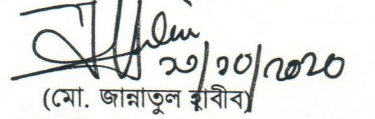 ২১/১০/২০২০
(মো. জান্নাতুল হাবীব)